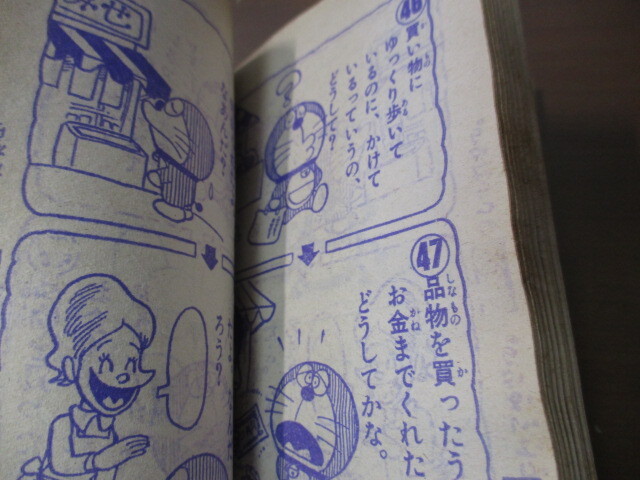 46
買い物に
ゆっくり歩いて
いるのに、かけて
いるっていうの、
どうして?
47
品物を買ったう
お金までくれた
どうしてかな。
ろう?